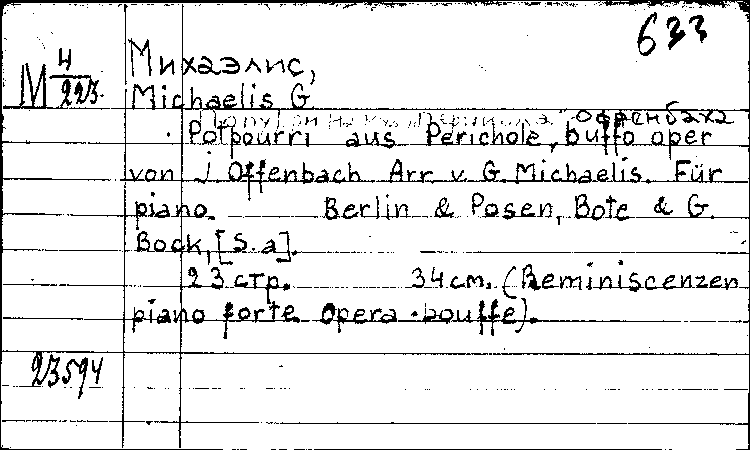 633
М 4/223.
Михаэлис,
Michaelis G
Попурри на "Перикола" Оффенбаха
Potpourri aus Perichole, buffo oper
von J Offenbach Arr. v. G. Michaelis. Für
piano. Berlin & Posen, Bote & G.
Bock, [S. a].
23 стр. 34 см. (Reminiscenzen
piano forte opera-bouffe).
23594